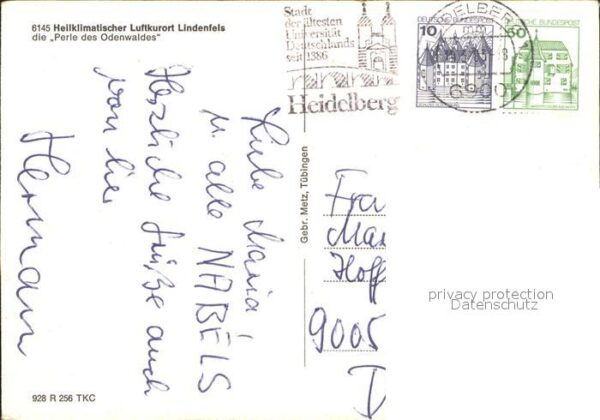 6145 Heilklimatischer Luftkurort Lindenfels
die „Perle des Odenwaldes"
Liebe Maria
u. alle NABELS
Herzliche Grüße auch
von hier
Hermann
928 R 256 TKC
Gebr. Metz, Tübingen
Stadt
der ältesten
Universität
Deutschlands
seit 1386
Heidelberg
HEIDELBERG
6900
DEUTSCHE BUNDESPOST
10
DEUTSCHE BUNDESPOST
50
Frau
Mar
Hoff
9005
privacy protection
Datenschutz